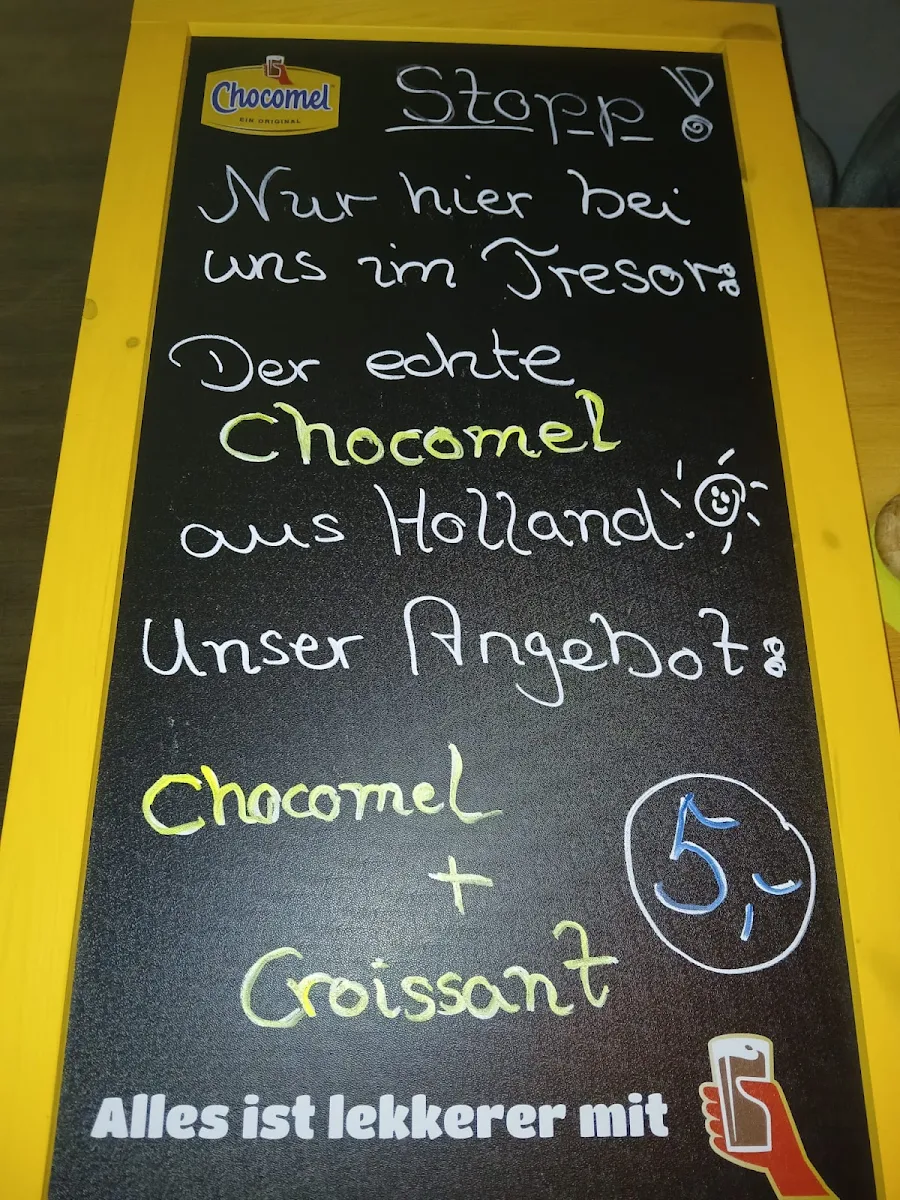 Chocomel
EIN ORIGINAL
Stopp!
Nur hier bei
uns im Tresor:
Der echte
Chocomel
aus Holland.
Unser Angebot:
Chocomel
+
Croissant
5,-
Alles ist lekkerer mit